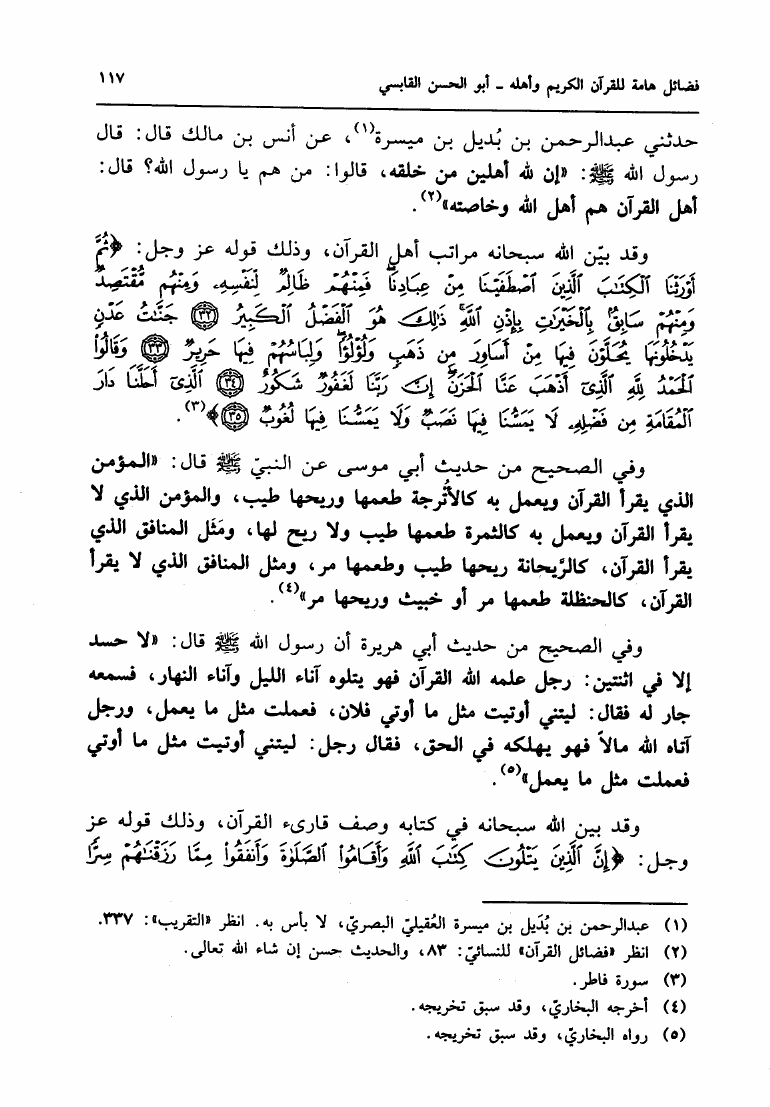 فضائل هامة للقرآن الكريم وأهله ـ أبو الحسن القابسي ١١٧
حدثني عبدالرحمن بن بُديل بن ميسرة(١)، عن أنس بن مالك قال: قال
رسول الله ﷺ: «إن لله أهلين من خلقه، قالوا: من هم يا رسول الله؟ قال:
أهل القرآن هم أهل الله وخاصته»(٢).
وقد بيّن الله سبحانه مراتب أهل القرآن، وذلك قوله عز وجل: ﴿ثُمَّ
أَوْرَثْنَا ٱلْكِتَٰبَ ٱلَّذِينَ ٱصْطَفَيْنَا مِنْ عِبَادِنَا ۖ فَمِنْهُمْ ظَالِمٌ لِّنَفْسِهِۦ وَمِنْهُم مُّقْتَصِدٌ
وَمِنْهُمْ سَابِقٌۢ بِٱلْخَيْرَٰتِ بِإِذْنِ ٱللَّهِ ۚ ذَٰلِكَ هُوَ ٱلْفَضْلُ ٱلْكَبِيرُ ۝٣٢ جَنَّٰتُ عَدْنٍ
يَدْخُلُونَهَا يُحَلَّوْنَ فِيهَا مِنْ أَسَاوِرَ مِن ذَهَبٍ وَلُؤْلُؤًا ۖ وَلِبَاسُهُمْ فِيهَا حَرِيرٌ ۝٣٣ وَقَالُوا۟
ٱلْحَمْدُ لِلَّهِ ٱلَّذِىٓ أَذْهَبَ عَنَّا ٱلْحَزَنَ ۖ إِنَّ رَبَّنَا لَغَفُورٌ شَكُورٌ ۝٣٤ ٱلَّذِىٓ أَحَلَّنَا دَارَ
ٱلْمُقَامَةِ مِن فَضْلِهِۦ لَا يَمَسُّنَا فِيهَا نَصَبٌ وَلَا يَمَسُّنَا فِيهَا لُغُوبٌ ۝٣٥﴾(٣).
وفي الصحيح من حديث أبي موسى عن النبيّ ﷺ قال: «المؤمن
الذي يقرأ القرآن ويعمل به كالأُترجة طعمها وريحها طيب، والمؤمن الذي لا
يقرأ القرآن ويعمل به كالثمرة طعمها طيب ولا ريح لها، ومَثَل المنافق الذي
يقرأ القرآن، كالرَّيحانة ريحها طيب وطعمها مر، ومثل المنافق الذي لا يقرأ
القرآن، كالحنظلة طعمها مر أو خبيث وريحها مر»(٤).
وفي الصحيح من حديث أبي هريرة أن رسول الله ﷺ قال: «لا حسد
إلا في اثنتين: رجل علمه الله القرآن فهو يتلوه آناء الليل وآناء النهار، فسمعه
جار له فقال: ليتني أوتيت مثل ما أوتي فلان، فعملت مثل ما يعمل، ورجل
آتاه الله مالاً فهو يهلكه في الحق، فقال رجل: ليتني أوتيت مثل ما أوتي
فعملت مثل ما يعمل»(٥).
وقد بين الله سبحانه في كتابه وصف قارىء القرآن، وذلك قوله عز
وجل: ﴿إِنَّ ٱلَّذِينَ يَتْلُونَ كِتَٰبَ ٱللَّهِ وَأَقَامُوا۟ ٱلصَّلَوٰةَ وَأَنفَقُوا۟ مِمَّا رَزَقْنَٰهُمْ سِرًّا
(١) عبدالرحمن بن بُدَيل بن ميسرة العُقيليّ البصريّ، لا بأس به. انظر «التقريب»: ٣٣٧.
(٢) انظر «فضائل القرآن» للنسائيّ: ٨٣، والحديث حسن إن شاء الله تعالى.
(٣) سورة فاطر.
(٤) أخرجه البخاريّ، وقد سبق تخريجه.
(٥) رواه البخاريّ، وقد سبق تخريجه.